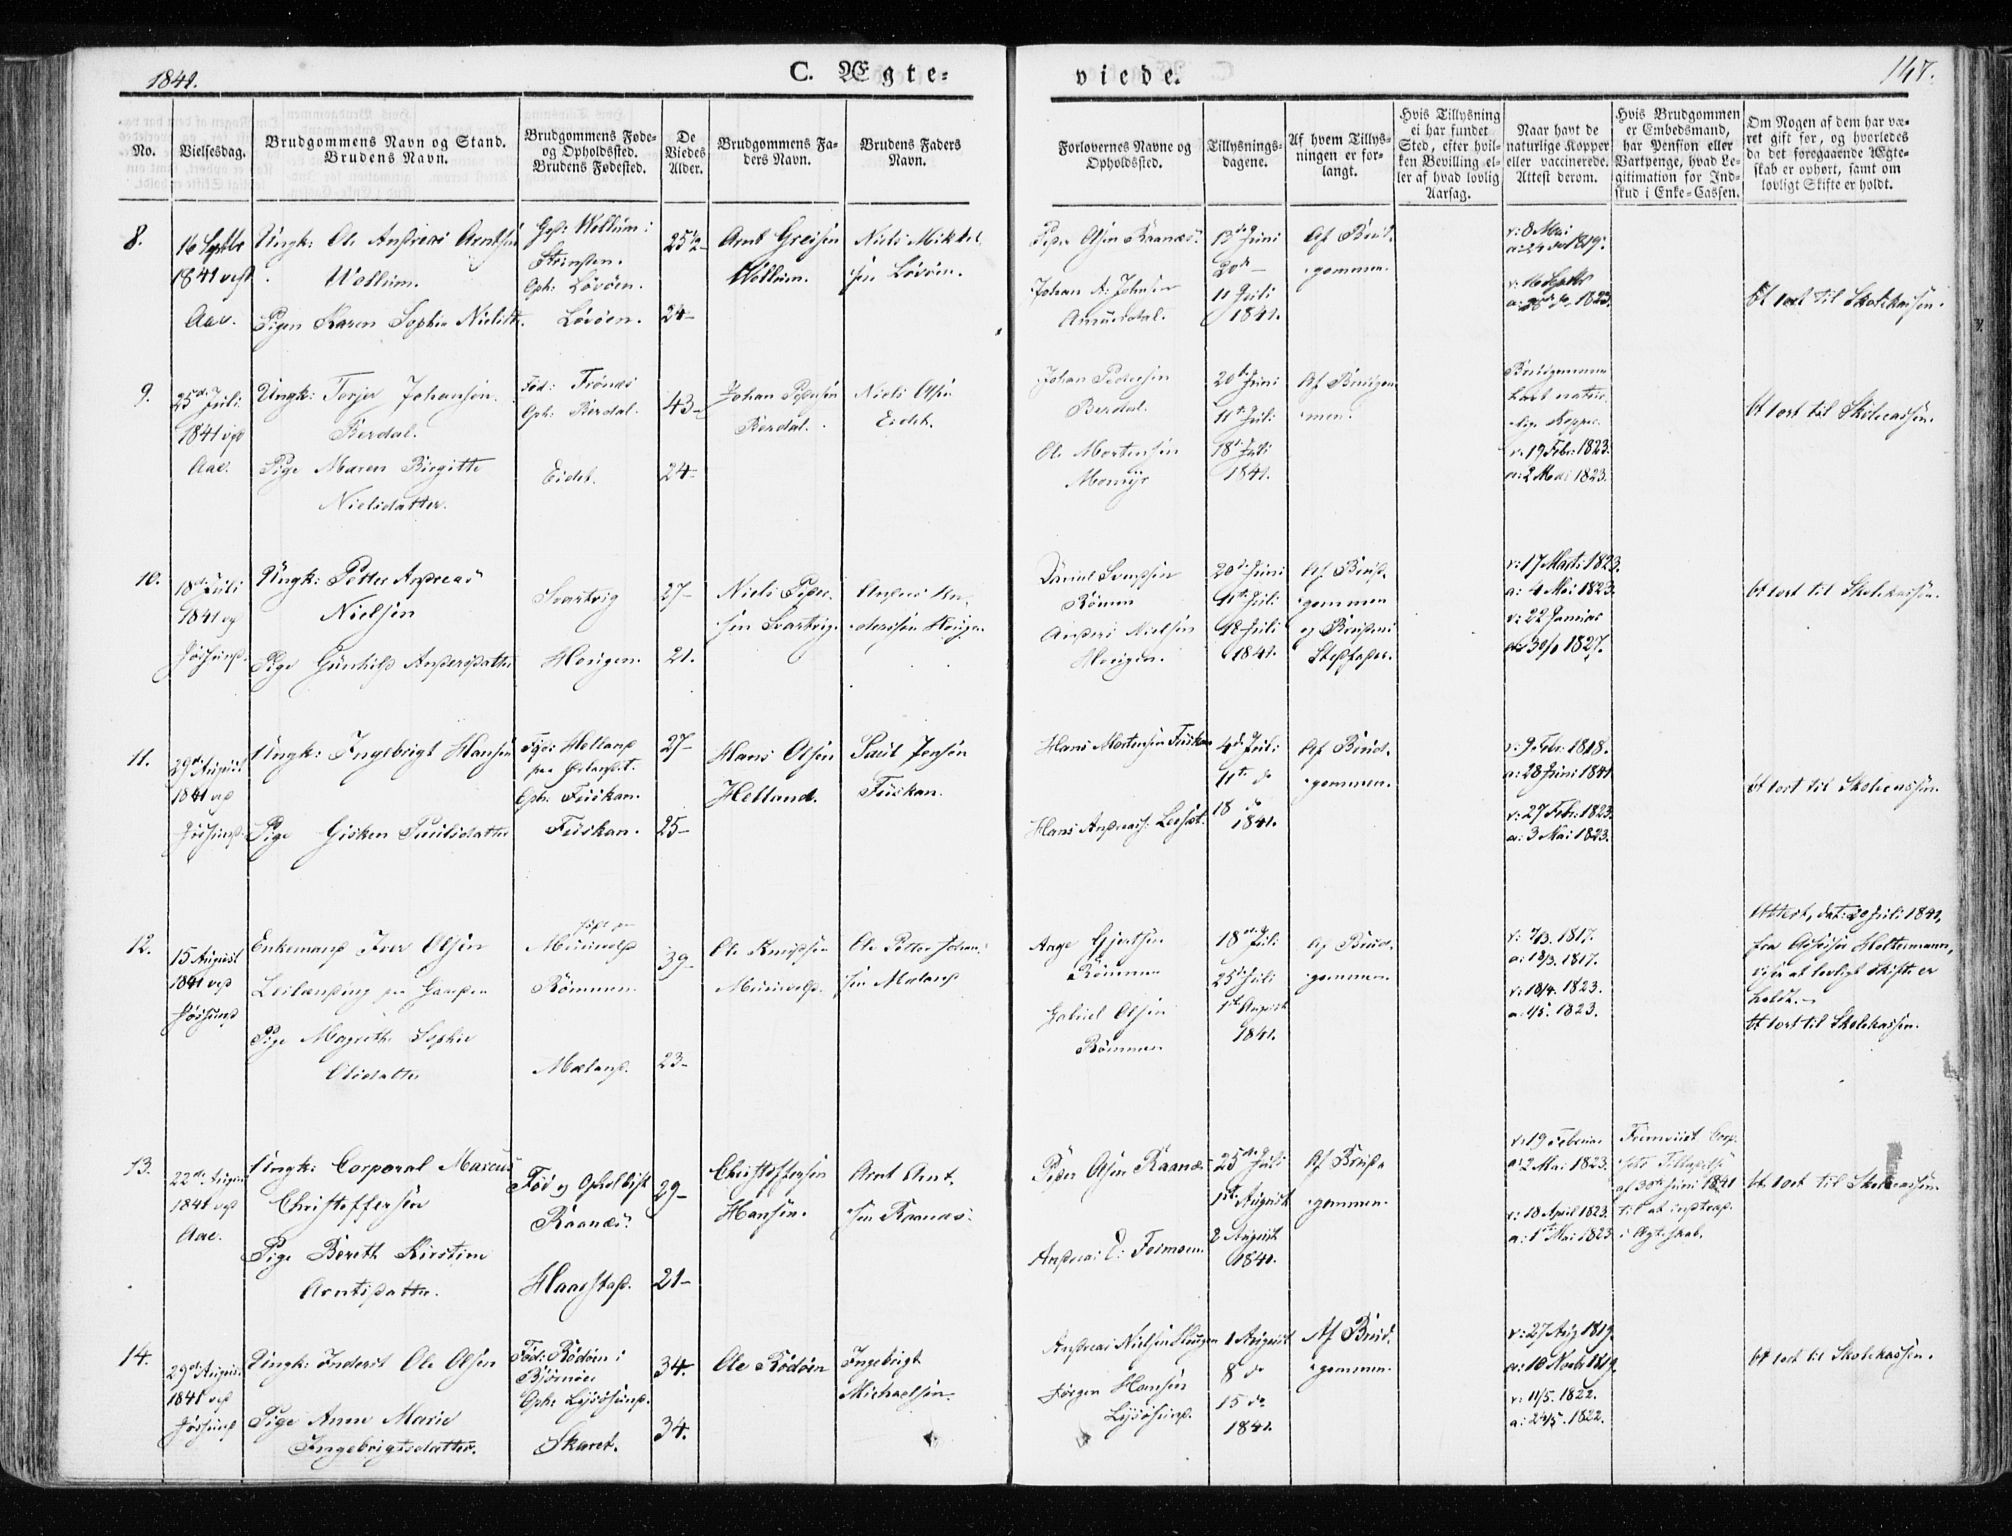 1841.
C. Ægte=
viede.
147.
No.
Vielsesdag.
Brudgommens Navn og Stand.
Brudens Navn.
Brudgommens Føde-
og Opholdssted.
Brudens Fødested.
De
Viedes
Alder.
Brudgommens Fa-
ders Navn.
Brudens Faders
Navn.
Forlovernes Navne og
Opholdssted.
Tillysnings-
dagene.
Af hvem Tillys-
ningen er for-
langt.
Hvis Tillysning
ei har fundet
Sted, efter hvil-
ken Bevilling el-
ler af hvad lovlig
Aarsag.
Naar havt de
naturlige Kopper
eller vaccinerede.
Attest derom.
Hvis Brudgommen
er Embedsmand,
har Pension eller
Vartpenge, hvad Le-
gitimation for Ind-
skud i Enke-Cassen.
Om Nogen af dem har væ-
ret gift før, og hvorledes
da det foregaaende Ægte-
skab er ophørt, samt om
lovligt Skifte er holdt.
8.
16 Septbr
1841 ved
Aae.
Ungk: Ole Andreas Arntsen
Wollum.
Pigen Karen Sophie Nielsdt.
Wollum i
Oph: Løvøen.
Løvøen.
25½
24
Arnt Greisen
Wollum.
Niels Mikkel-
sen Løvøen.
Peder Olsen Raanes.
Johan A: Johnsen
13de Juni
20de
11 Juli
1841.
Af Brud-
gommen.
v: 8 Mai
1819.
v: 16 Septbr
1823.
bt 1ort til Skolekassen.
9.
25de Juli
1841 ved
Aae.
Ungk: Torjer Johansen
Berdal.
Pige Maren Birgitte
Nielsdatter.
Fød: Frønes
Oph: Berdal.
Eidet.
43
24
Johan Pedersen
Berdal.
Niels Olsen
Eidet.
Johan Pedersen
Berdal.
Ole Mortensen
Momyr
20de Juni
11te Juli
18de Juli
1841.
Af Brudgom-
men.
Brudgommen
havt natur-
lige Kopper.
v: 19 Febr: 1823.
a: 2 Mai 1823.
bt 1ort til Skolecassen.
10.
18de Juli
1841 ved
Jøssund.
Ungk: Petter Andreas
Nielsen
Pige Gunhild Andersdatter
Svartvig
Hougen.
27
21.
Niels Peder-
sen Svartvig.
Anders An-
dersen Hougen.
Daniel Svendsen
Rømmen
Anders Nielsen
Hougen.
20de Juni
11te Juli
18 Juli
1841.
Af Brud-
gommen
og Brudens
Stedfader.
v: 17 Marts 1823.
a: 4 Mai 1823.
v: 22 Januar
1827.
bt 1ort til Skolekassen.
11.
29de August
1841 ved
Jøssund.
Ungk: Ingebrigt Hansen
Pige Gisken Paulsdatter
Fød: Helland
paa Ørlandet.
Oph: Fuskan.
Fuskan.
27
25
Hans Olsen
Helland.
Paul Jensen
Fuskan.
Hans Mortensen Fuskan
Hans Andreas:
4de Juli
11te do
18 do
1841.
Af Brud-
gommen.
v: 9 Febr: 1818.
a: 28 Juni 1841
v: 27 Febr: 1823.
a: 3 Mai 1823.
bt 1ort til Skolecassen.
12.
15 August
1841 ved
Jøssund
Enkemand Iver Olsen
Pige Magrethe Sophie
Olsdatter
Rømmen.
Mæland.
39
23
Ole Knudsen
Ole Petter Johan-
sen Mæland
Aage Gjertsen
Rømmen
Gabriel Olsen
Rømmen
18de Juli
25de Juli
1ste August
1841.
Af Brud-
gommen.
v: 7/3. 1817.
a: 13/3. 1817.
v: 18/4. 1823.
a: 1/5. 1823.
Attest, dat: 20 Juli 1841,
fra Assessor Holtermann,
viser at lovligt Skifte er
holdt.
bt 1ort til Skolekassen.
13.
22de August
1841 ved
Aae.
Ungk: Corporal Marcus
Christoffersen
Pige Bereth Kirstine
Arntsdatter.
Raanes.
Haarstad.
29
21
Christoffersen
Hansen.
Arnt Arnt-
sen Raanes.
Peder Olsen Raanes
25de Juli
1ste August
2 August
1841.
Af Brud-
gommen.
v: 19 Februar
a: 2 Mai 1823.
v: 18 April 1823.
a: 1st Mai 1823.
Foreviist Comp.
Tilladelse
af 30te Juni 1841
til at indtræde
i Ægteskab.
bt 1ort til Skolecassen.
14.
29de August
1841 ved
Jøssund
Ungk: Inderst Ole Olsen
Pige Anne Marie
Ingebrigtsdatter.
Fød: Rødøen i
Bjørnør
Oph: Lysøsund.
Skaret.
34.
34.
Ole Rødøen
Ingebrigt
Michaelsen.
Andreas Nielsen Hougen
Jørgen Hansen
Lysøsund.
1 August
8 do
15 do
1841.
Af Brud-
gommen.
v: 27 Aug 1819.
a: 10 Novbr 1819.
v: 11/5. 1822.
a: 24/5. 1822.
bt 1ort til Skolekassen.